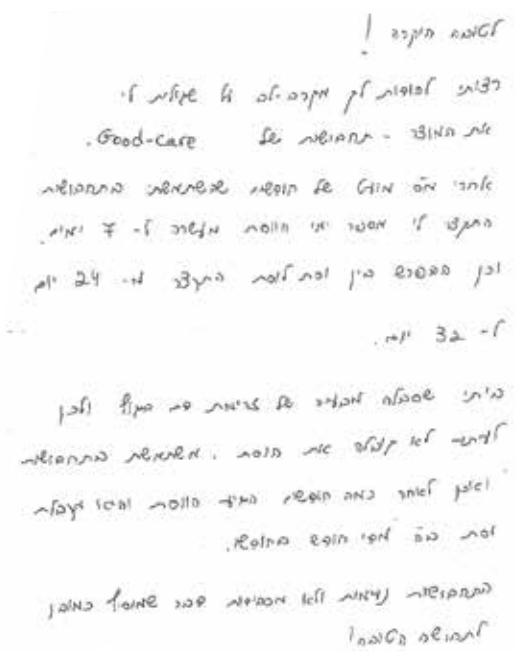 לטובה היקרה!
רציתי להודות לך מקרב-לב על שגילית לי
את המוצר - תחבושות של Good-care.
אחרי מס' מועט של חודשים שהשתמשתי בתחבושות
התקצר לי מספר ימי הווסת מעשרה ל- 7 ימים.
וכן ההפרש בין וסת לוסת התקצר מ- 24 יום
ל- 32 יום.
ביתי שסבלה מבעיה של זרימת דם בגוף ולכן
לעיתים לא קיבלה את הוסת, משתמשת בתחבושות
ואכן לאחר כמה חודשים הגיע הווסת והיא מקבלת
וסת ב"ה מידי חודש בחודשו.
התחבושות נעימות ולא מכבידות דבר שמוסיף כמובן
לתחושה הטובה!